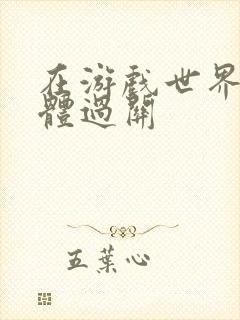 在游戏世界
體過關
五葉心